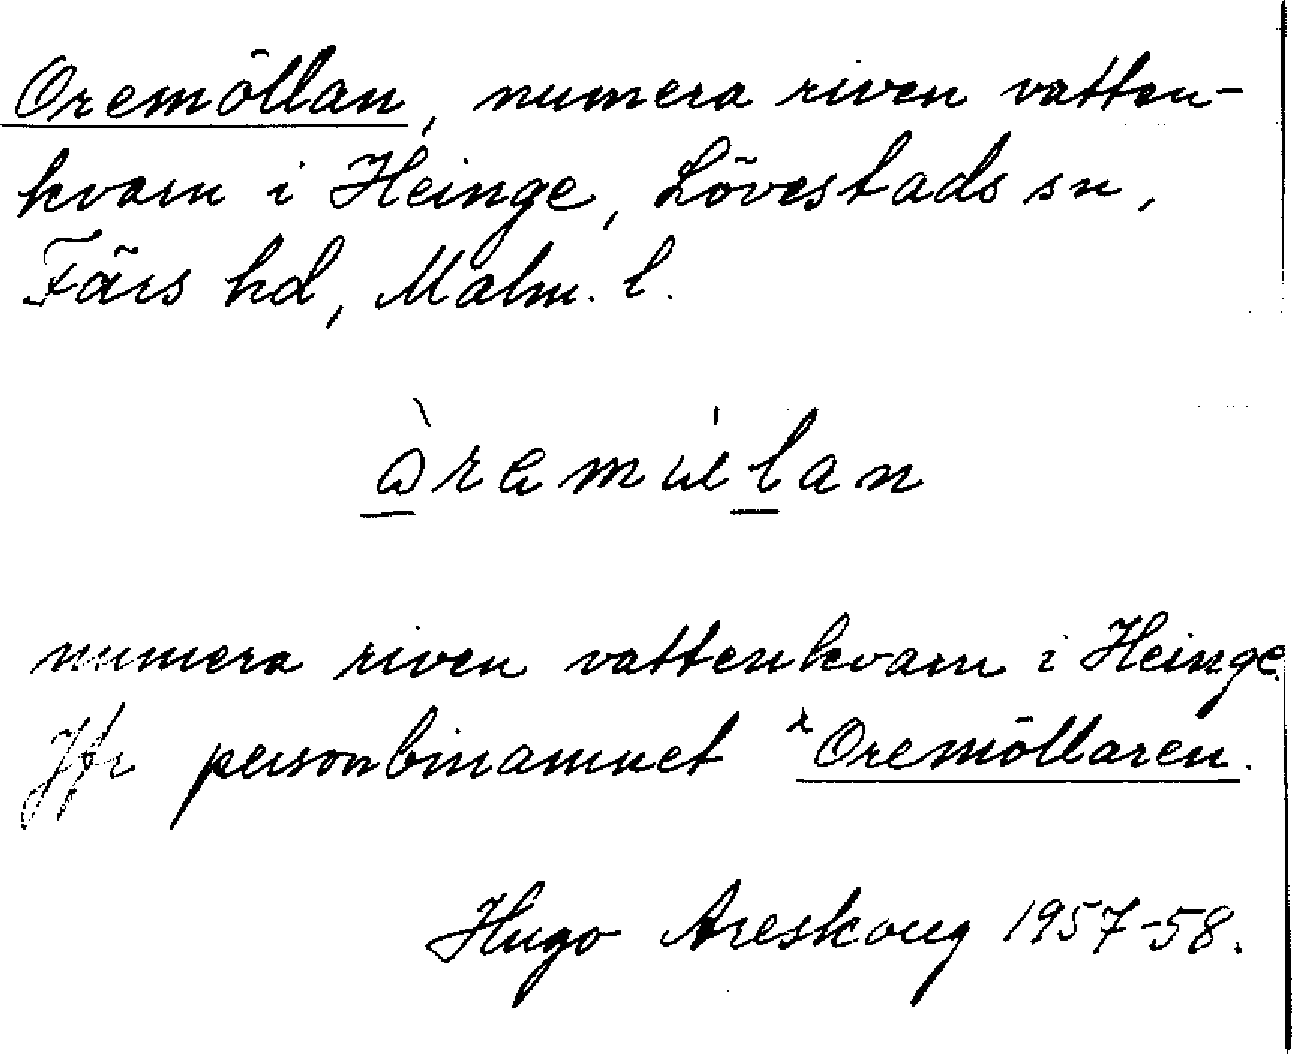 Oremöllan, numera riven vatten-
kvarn i Heinge, Lövestads sn,
Färs hd, Malm. l.
numera riven vattenkvarn i Heinge.
Jfr personbinamnet Oremöllaren.
Hugo Areskoug 1957-58.